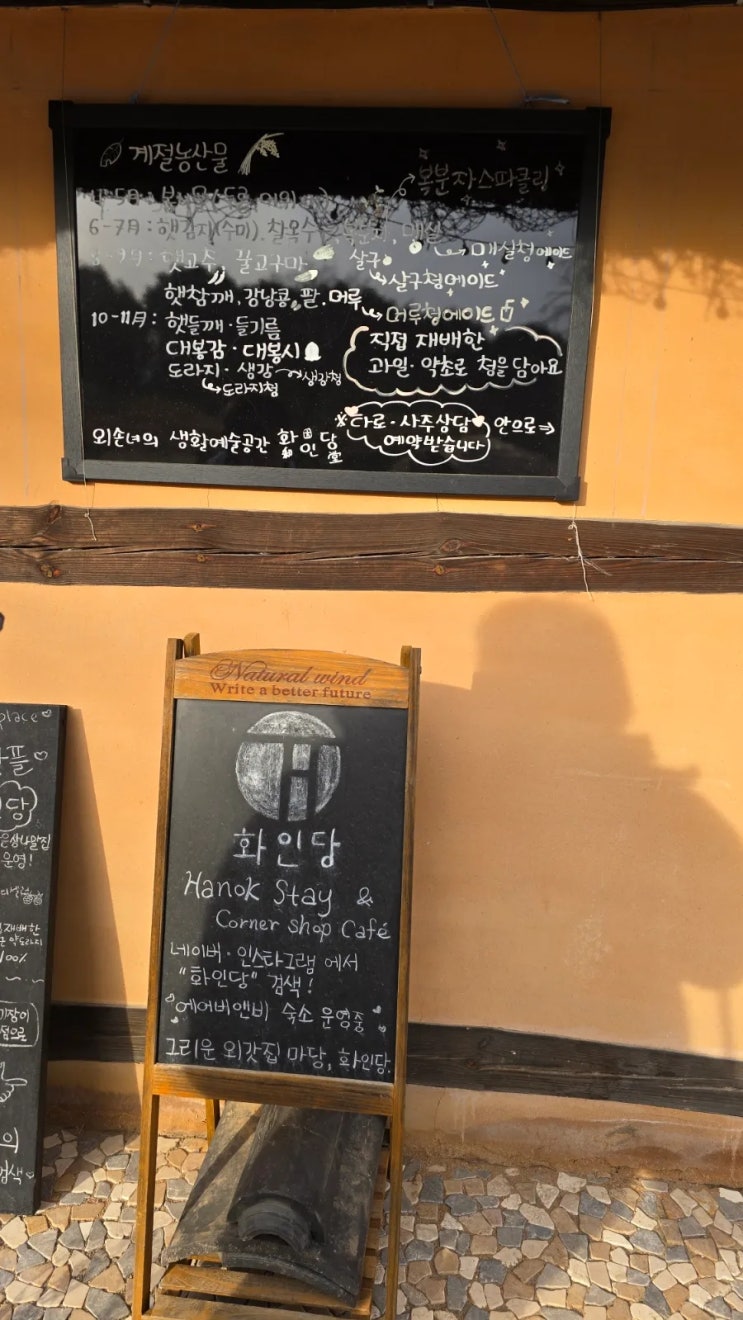 계절농산물
복분자스파클링
6-7月 : 햇감자(수미). 찰옥수수 매실
매실청에이드
8-9月 : 햇고추, 꿀고구마 살구
살구청에이드
햇참깨. 강낭콩, 팥. 머루
머루청에이드
10-11月 : 햇들깨 · 들기름
대봉감 · 대봉시
도라지 · 생강 생강청
도라지청
직접 재배한
과일 · 약초로 청을 담아요
외손녀의 생활예술공간 화인당
타로 · 사주상담 안으로⇒
예약받습니다
Natural wind
Write a better future
화인당
Hanok Stay &
Corner shop Café
네이버 · 인스타그램 에서
"화인당" 검색!
에어비앤비 숙소 운영중
그리운 외갓집 마당, 화인당.
place
운영!
재배한
100%